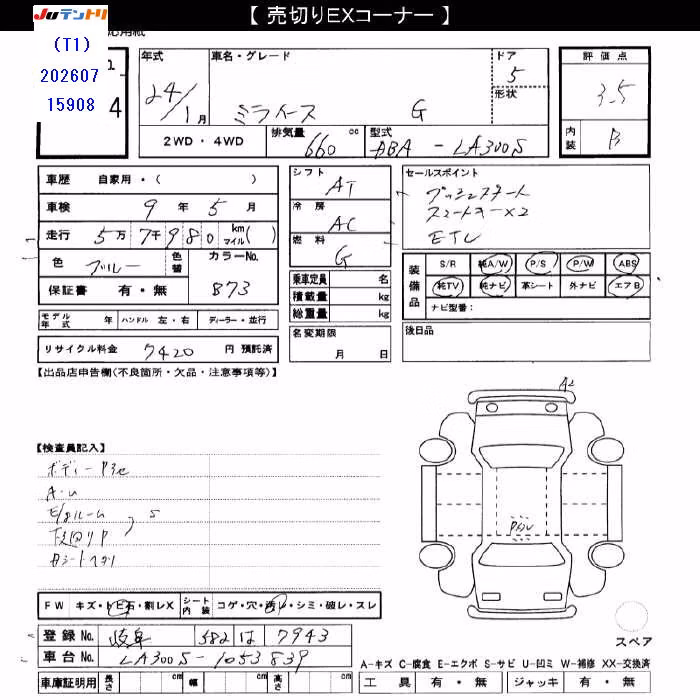 【 売切りEXコーナー 】
JUテントリ
(T1)
202607
15908
4
年式 24/1月
車名・グレード ミライース G
ドア 5
形状
評価点 3.5
内装 B
2WD・4WD
排気量 660 cc
型式 DBA - LA300S
車歴 自家用・( )
車検 9年 5月
走行 5万 7千 9 8 0 km マイル( )
色 ブルー 色替 カラーNo. B73
保証書 有・無
シフト AT
冷房 AC
燃料 G
乗車定員 名
積載量 kg
総重量 kg
セールスポイント
プッシュスタート
スマートキー×2
ETC
装備品
S/R 純A/W P/S P/W ABS
純TV 純ナビ 革シート 外ナビ エアB
ナビ型番:
モデル年式 年 ハンドル 左・右 ディーラー・並行
名変期限 月 日
後日品
リサイクル料金 7420 円 預託済
【出品店申告欄(不良箇所・欠品・注意事項等)】
A2
【検査員記入】
A・U
S
FW キズ・トビ石・割レX シート内装 コゲ・穴・汚レ・シミ・破レ・スレ
登録No. 岐阜 582 は 7943
車台No. LA300S-1053839
車庫証明用 長さ cm 幅 cm 高さ cm
スペア
A-キズ C-腐食 E-エクボ S-サビ U-凹ミ W-補修 XX-交換済
工具 有・無 ジャッキ 有・無